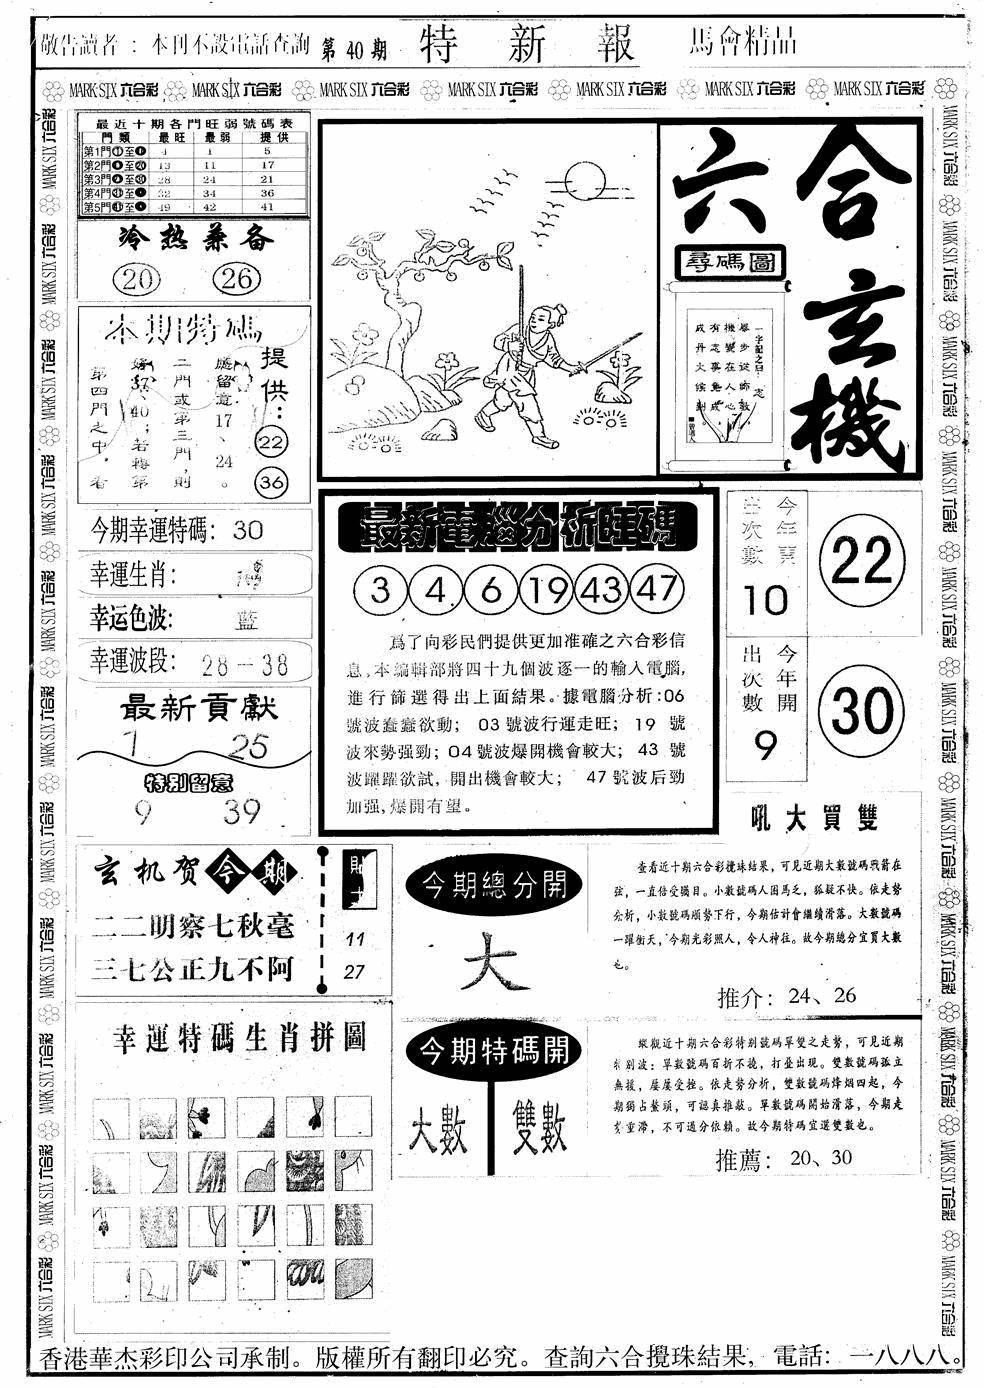 敬告讀者：本刊不設電話查詢 第40期 特新報 馬會精品
MARK SIX 六合彩 MARK SIX 六合彩 MARK SIX 六合彩 MARK SIX 六合彩 MARK SIX 六合彩 MARK SIX 六合彩 MARK SIX 六合彩
最近十期各門旺弱號碼表
門類 最旺 最弱 提供
第1門 至 4 1 5
第2門 至 13 11 17
第3門 至 28 24 21
第4門 至 32 34 36
第5門 至 49 42 41
冷热兼备
20 26
本期特碼
提供：
22
36
應留意17、24。
二門或第三門，則
第四門之中，看
今期幸運特碼：30
幸運生肖：
幸运色波：藍
幸運波段：28－38
最新貢獻
1 25
特别留意
9 39
六合玄機
尋碼圖
一字記之曰：志
機變在人心
有志事竟成
最新電腦分析旺碼
3 4 6 19 43 47
爲了向彩民們提供更加准確之六合彩信
息，本編輯部將四十九個波逐一的輸入電腦，
進行篩選得出上面結果。據電腦分析：06
號波蠢蠢欲動；03號波行運走旺；19號
波來勢强勁；04號波爆開機會較大；43號
波躍躍欲試，開出機會較大；47號波后勁
加强，爆開有望。
今年賣
出次數
10
22
今年開
出次數
9
30
吼大買雙
玄机贺今期
二二明察七秋毫
三七公正九不阿
貼士
11
27
今期總分開
大
查看近十期六合彩攪珠結果，可見近期大數號碼戰箭在
弦，一直倍受矚目。小數號碼人困馬乏，狐疑不快。依走勢
分析，小數號碼順勢下行，今期估計會繼續滑落。大數號碼
一躍衝天，今期光彩照人，令人神往。故今期總分宜買大數
也。
推介：24、26
今期特碼開
大數 雙數
縱觀近十期六合彩特别號碼單雙之走勢，可見近期
特别波：單數號碼百折不撓，打壘出現。雙數號碼孤立
無援，屢屢受挫。依走勢分析，雙數號碼烽烟四起，今
期獨占鰲頭，可認真推敲。單數號碼開始滑落，今期走
勢重滯，不可過分依賴。故今期特碼宜選雙數也。
推薦：20、30
幸運特碼生肖拼圖
香港華杰彩印公司承制。版權所有翻印必究。查詢六合攪珠結果，電話：一八八八。